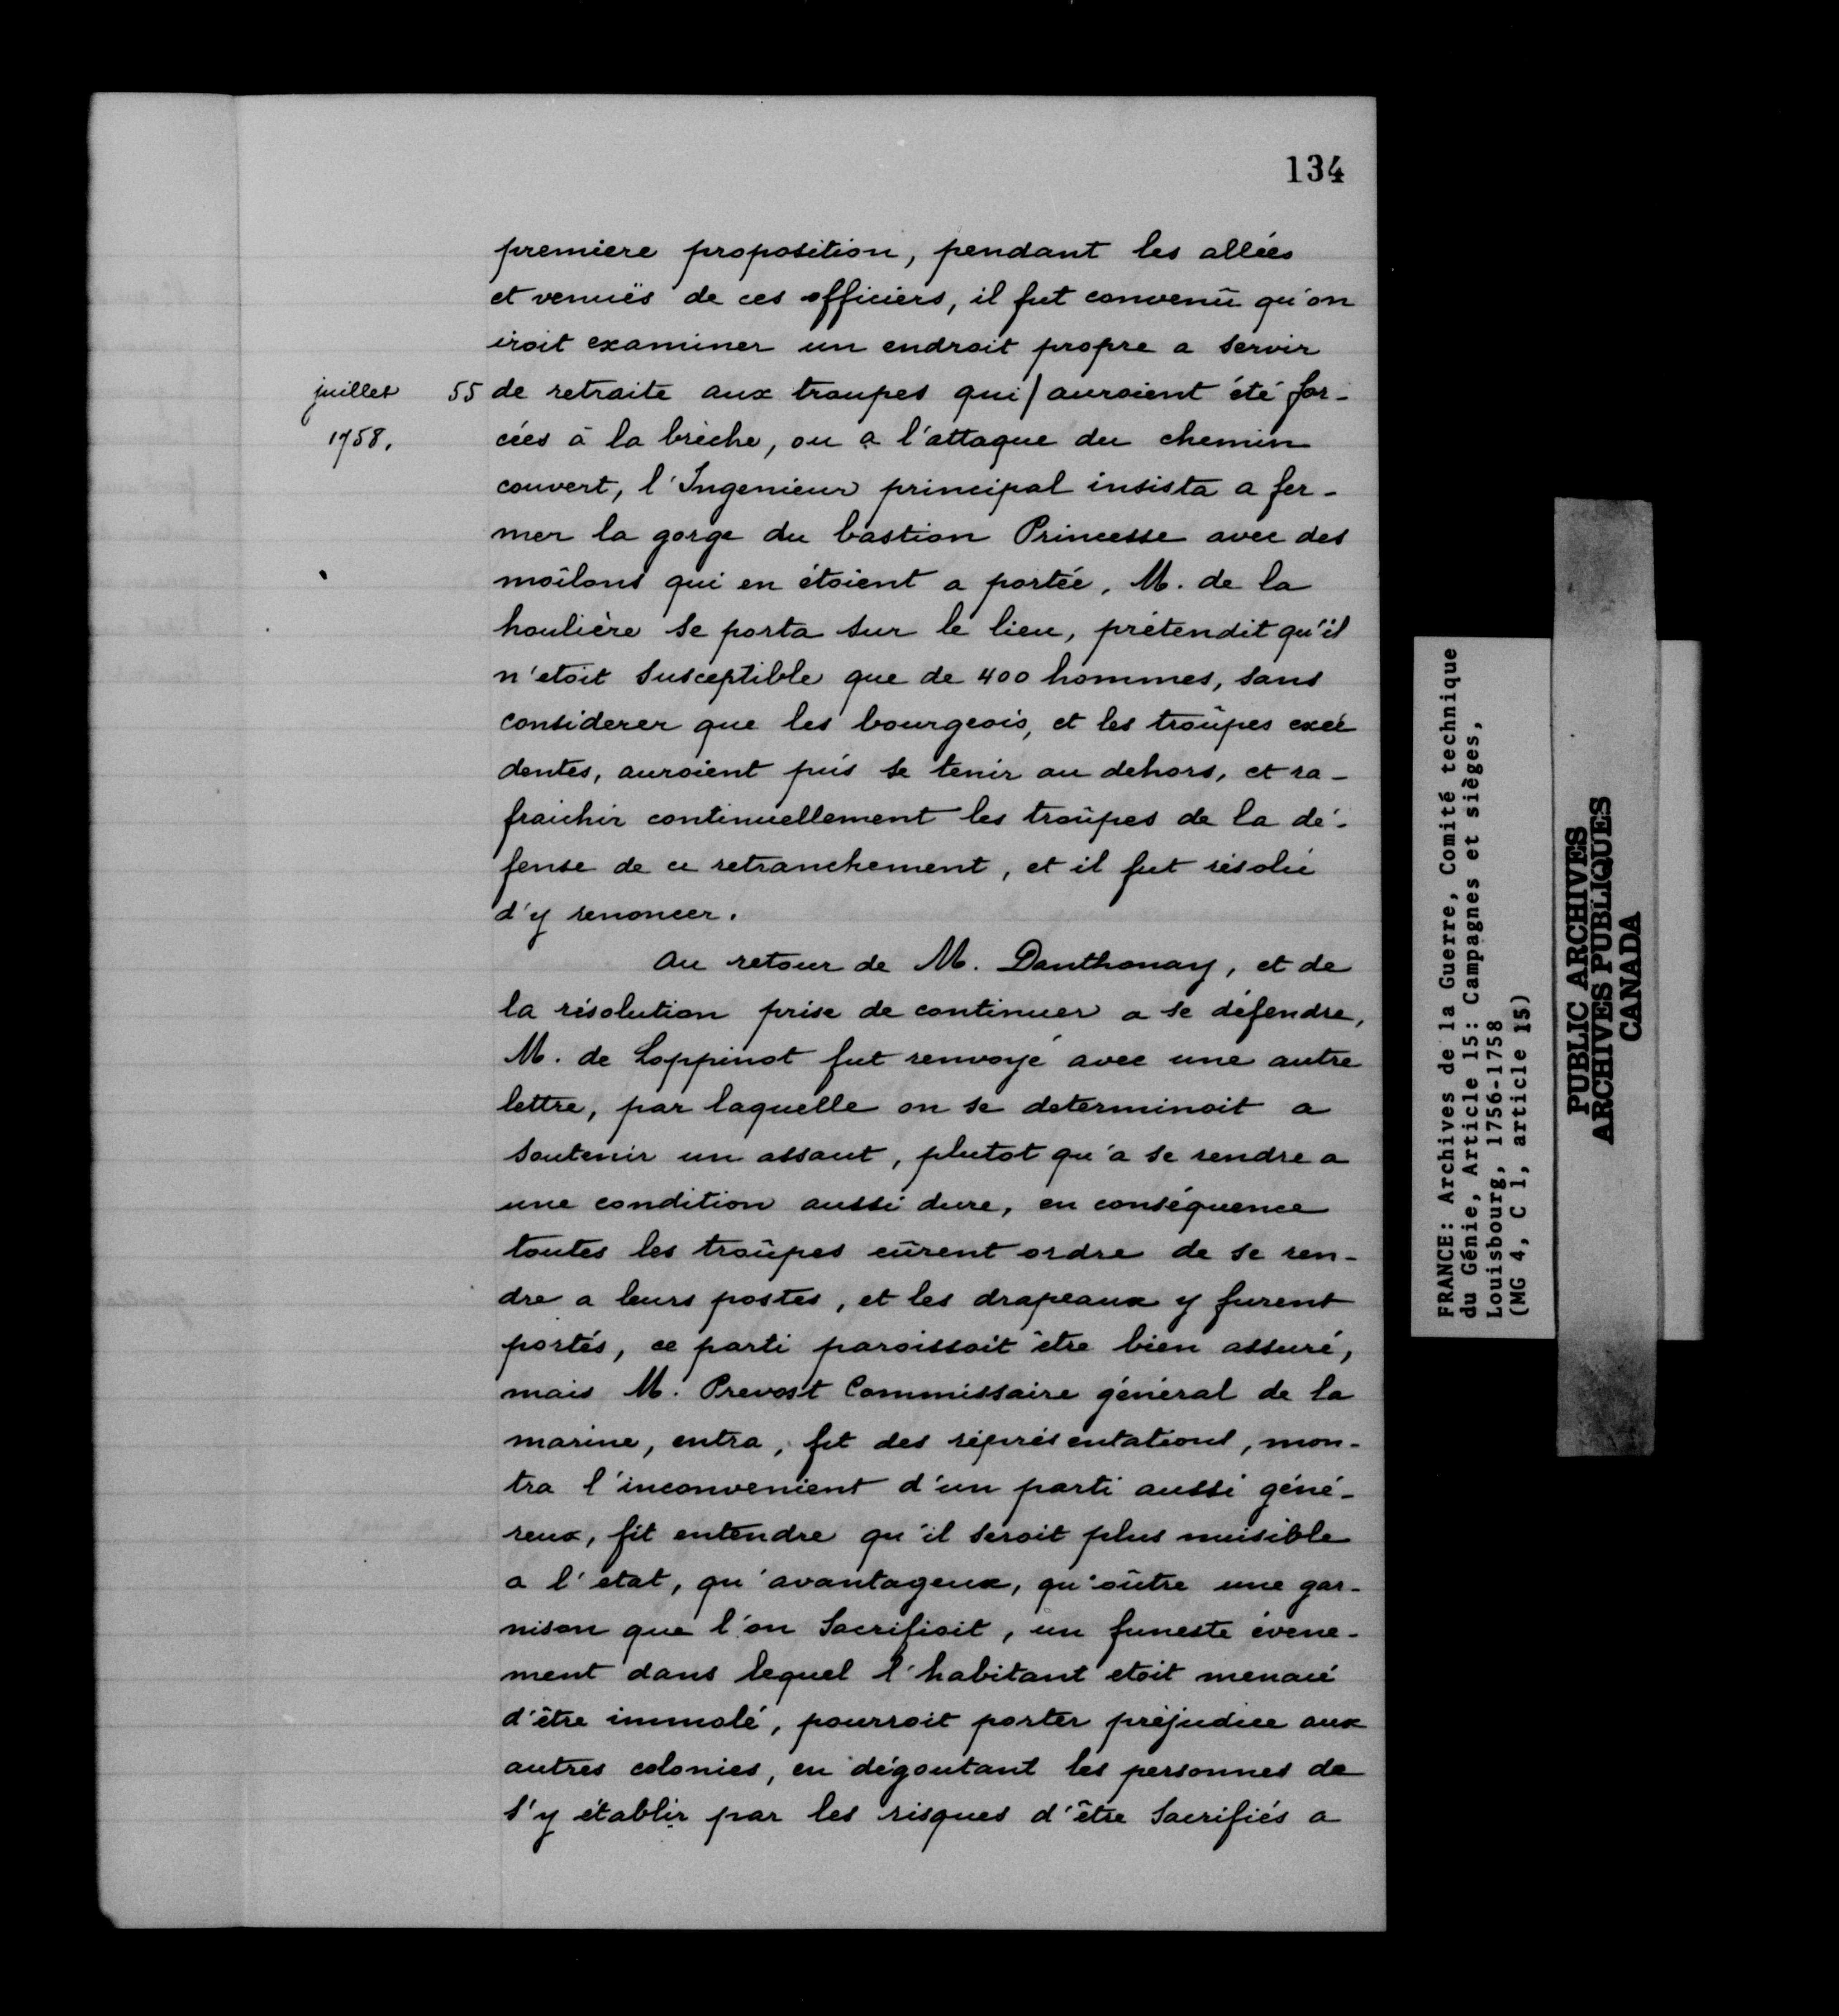 134
premiere proposition, pendant les allées
et venuës de ces officiers, il fut convenû qu'on
iroit examiner un endroit propre a servir
juillet 55 de retraite aux troupes qui/auroient été for-
1758. cées à la brèche, ou a l'attaque du chemin
couvert, l'Ingenieur principal insista a fer-
mer la gorge du bastion Princesse avec des
moîlons qui en étoient a portée, M. de la
houlière se porta sur le lieu, prétendit qu'il
n'etoit susceptible que de 400 hommes, sans
considerer que les bourgeois, et les troûpes excé
dentes, auroient pûs se tenir au dehors, et ra-
fraichir continuellement les troûpes de la dé-
fense de ce retranchement, et il fut résolu
d'y renoncer.
Au retour de M. Danthonay, et de
la résolution prise de continuer a se défendre,
M. de Loppinot fut renvoyé avec une autre
lettre, par laquelle on se determinoit a
soutenir un assaut, plutot qu'a se rendre a
une condition aussi dure, en conséquence
toutes les troûpes eûrent ordre de se ren-
dre a leurs postes, et les drapeaux y furent
portés, ce parti paroissoit être bien assuré,
mais M. Prevost Commissaire général de la
marine, entra, fit des réprésentations, mon-
tra l'inconvenient d'un parti aussi géné-
reux, fit entendre qu'il seroit plus nuisible
a l'état, qu'avantageux, qu'oûtre une gar-
nison que l'on Sacrifioit, un funeste évene-
ment dans lequel l'habitant etoit menacé
d'être immolé, pourroit porter préjudice aux
autres colonies, en dégoutant les personnes de
s'y établir par les risques d'être Sacrifiés a
FRANCE: Archives de la Guerre, Comité technique
du Génie, Article 15: Campagnes et sièges,
Louisbourg, 1756-1758
(MG 4, C 1, article 15)
PUBLIC ARCHIVES
ARCHIVES PUBLIQUES
CANADA